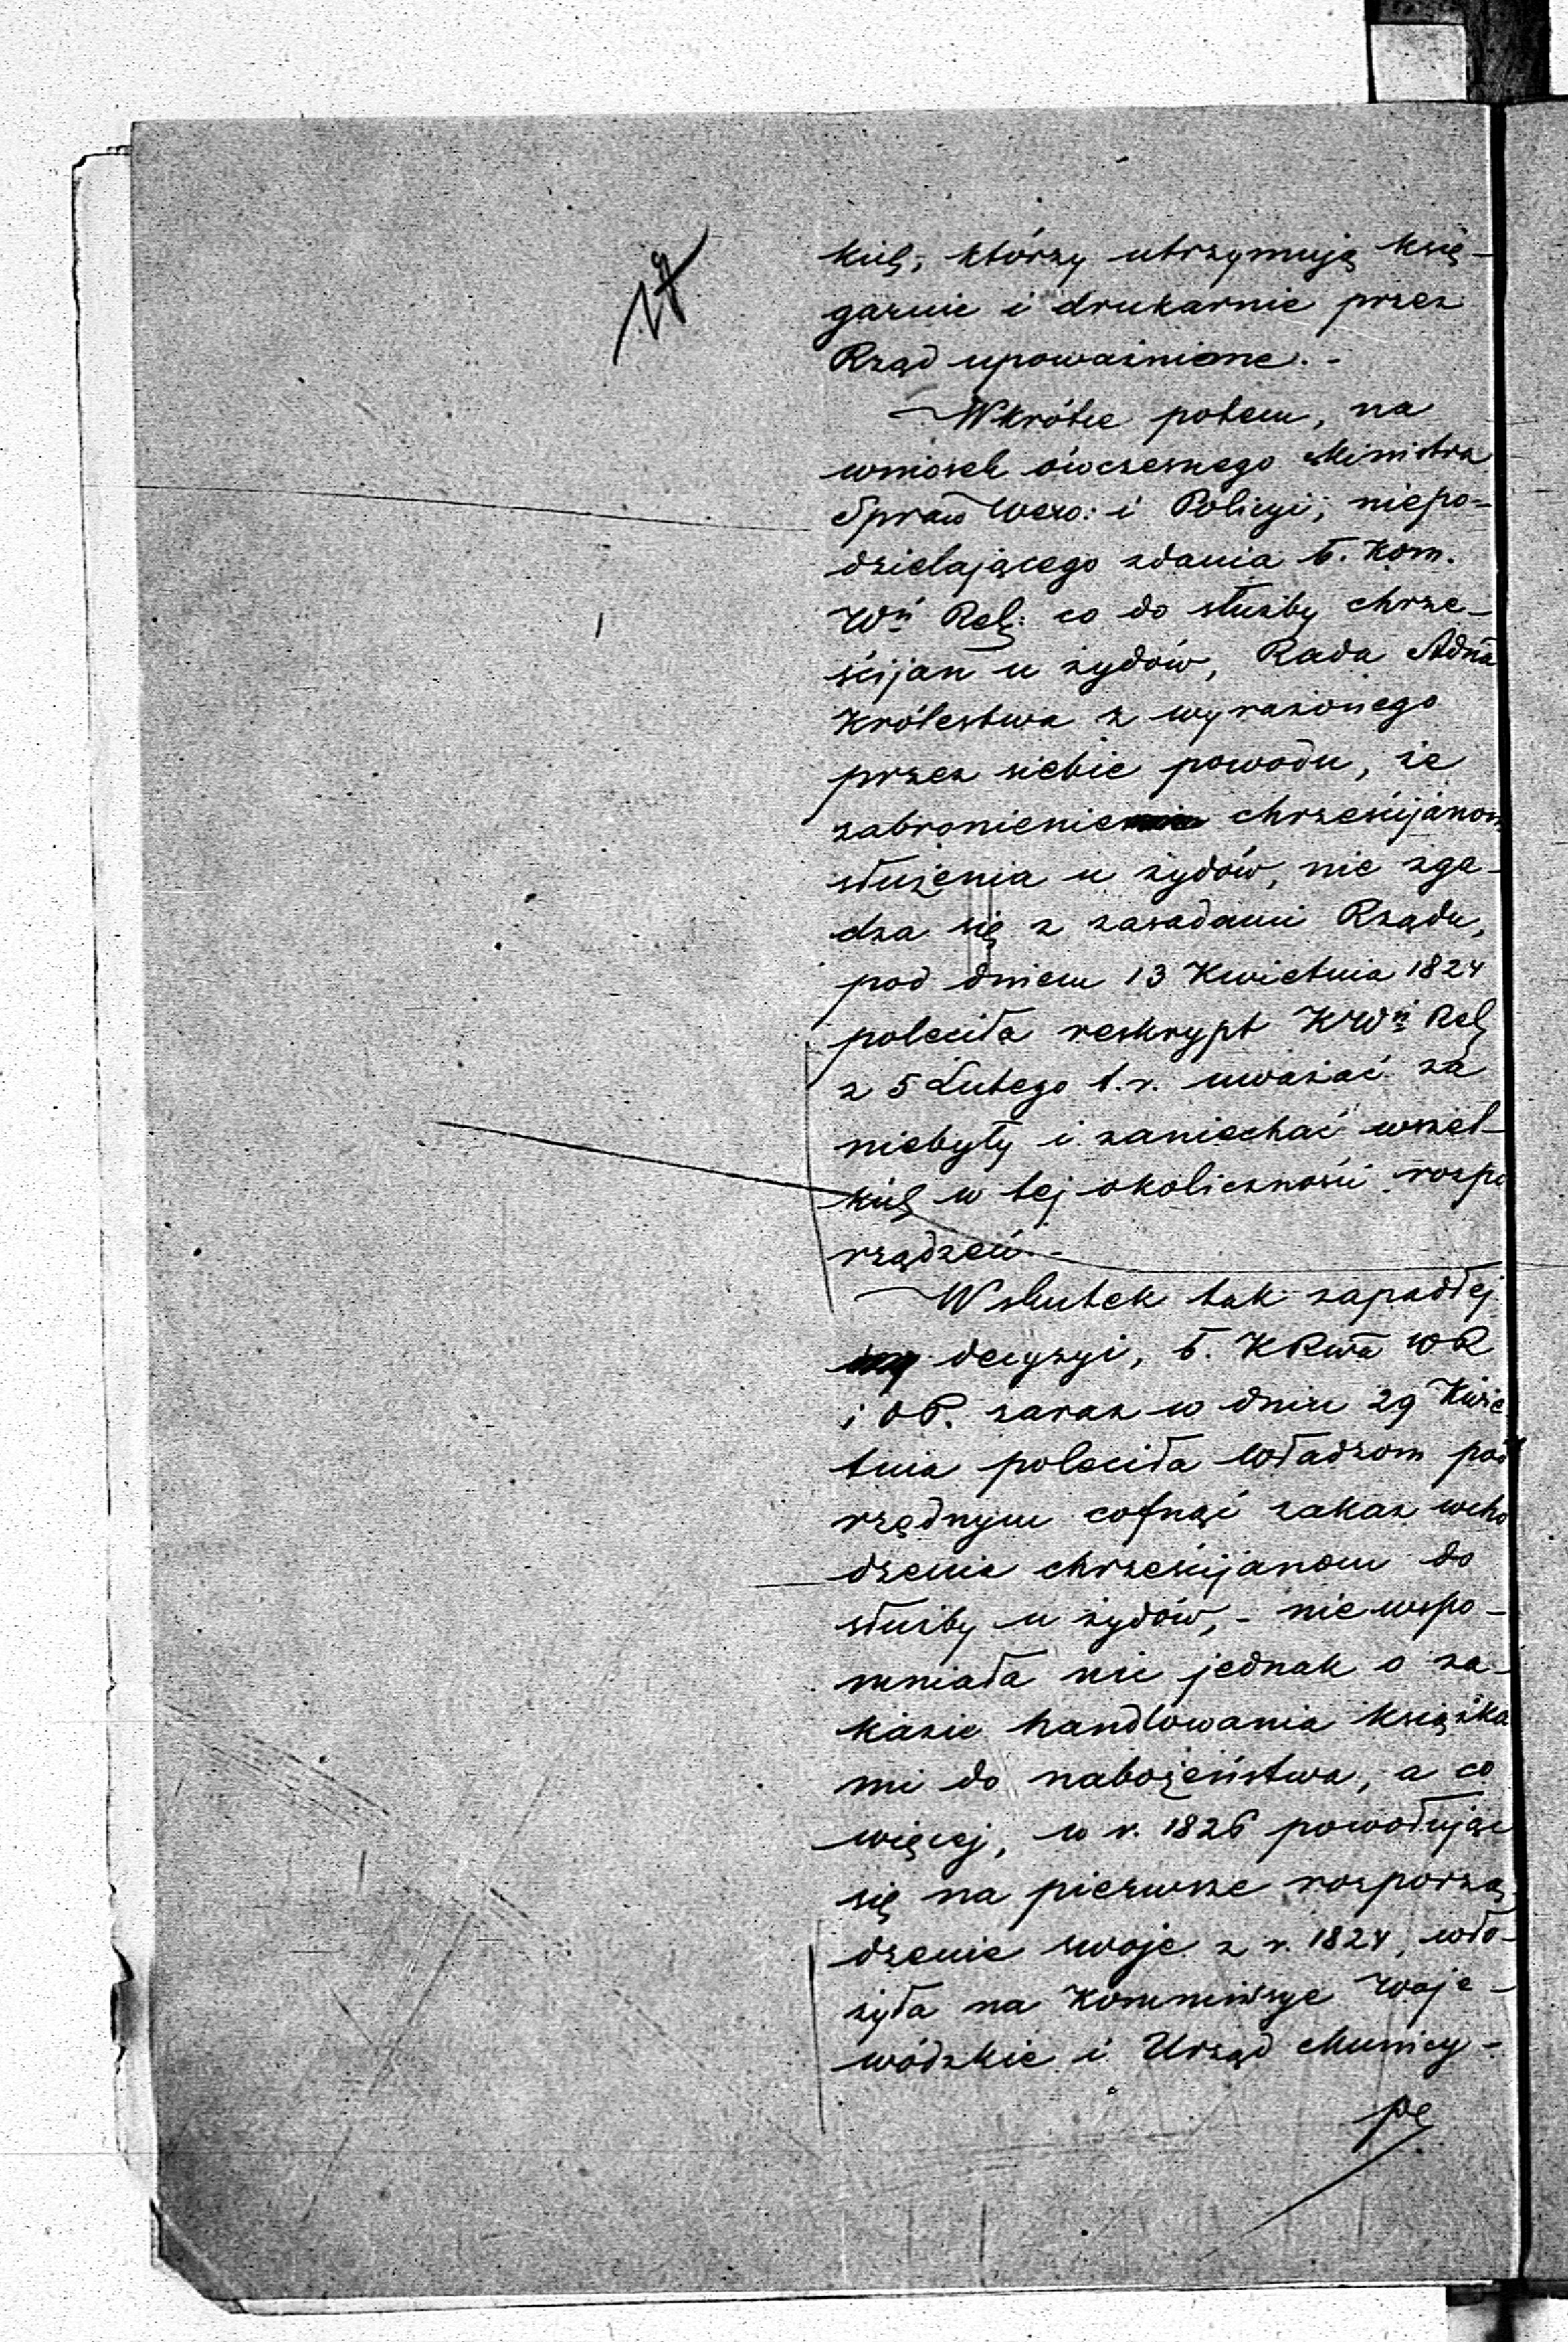 kich, którzy utrzymują księ-
garnie i drukarnie przez
Rząd upoważnione. -
Wkrótce potem, na
wniosek ówczesnego Ministra
Spraw Wew: i Policyi, niepo-
dzielającego zdania b. Kom.
Wń Rel: co do służby chrze-
ścijan u żydów, Rada Adna
Królestwa z wyrażonego
przez siebie powodu, że
zabronienie chrześcijanom
służenia u żydów, nie zga-
dza się z zasadami Rządu,
pod dniem 13 Kwietnia 1824
poleciła reskrypt KWń Rel
z 5 Lutego t.r. uważać za
niebyły i zaniechać wszel-
kich w tej okoliczności rozpo
rządzeń. -
Wskutek tak zapadłej
decyzyi, b. KRwa WR
i OP. zaraz w dniu 29 Kwie
tnia poleciła władzom pod
rzędnym cofnąć zakaz wcho
dzenia chrześcijanom do
służby u żydów, - niewspo-
mniała nic jednak o za-
kazie handlowania książka
mi do nabożeństwa, a co
więcej, w r. 1826 powołując
się na pierwsze rozporzą-
dzenie swoje z r. 1824, wło-
żyła na Kommissye Woje-
wódzkie i Urząd Municy-
pa